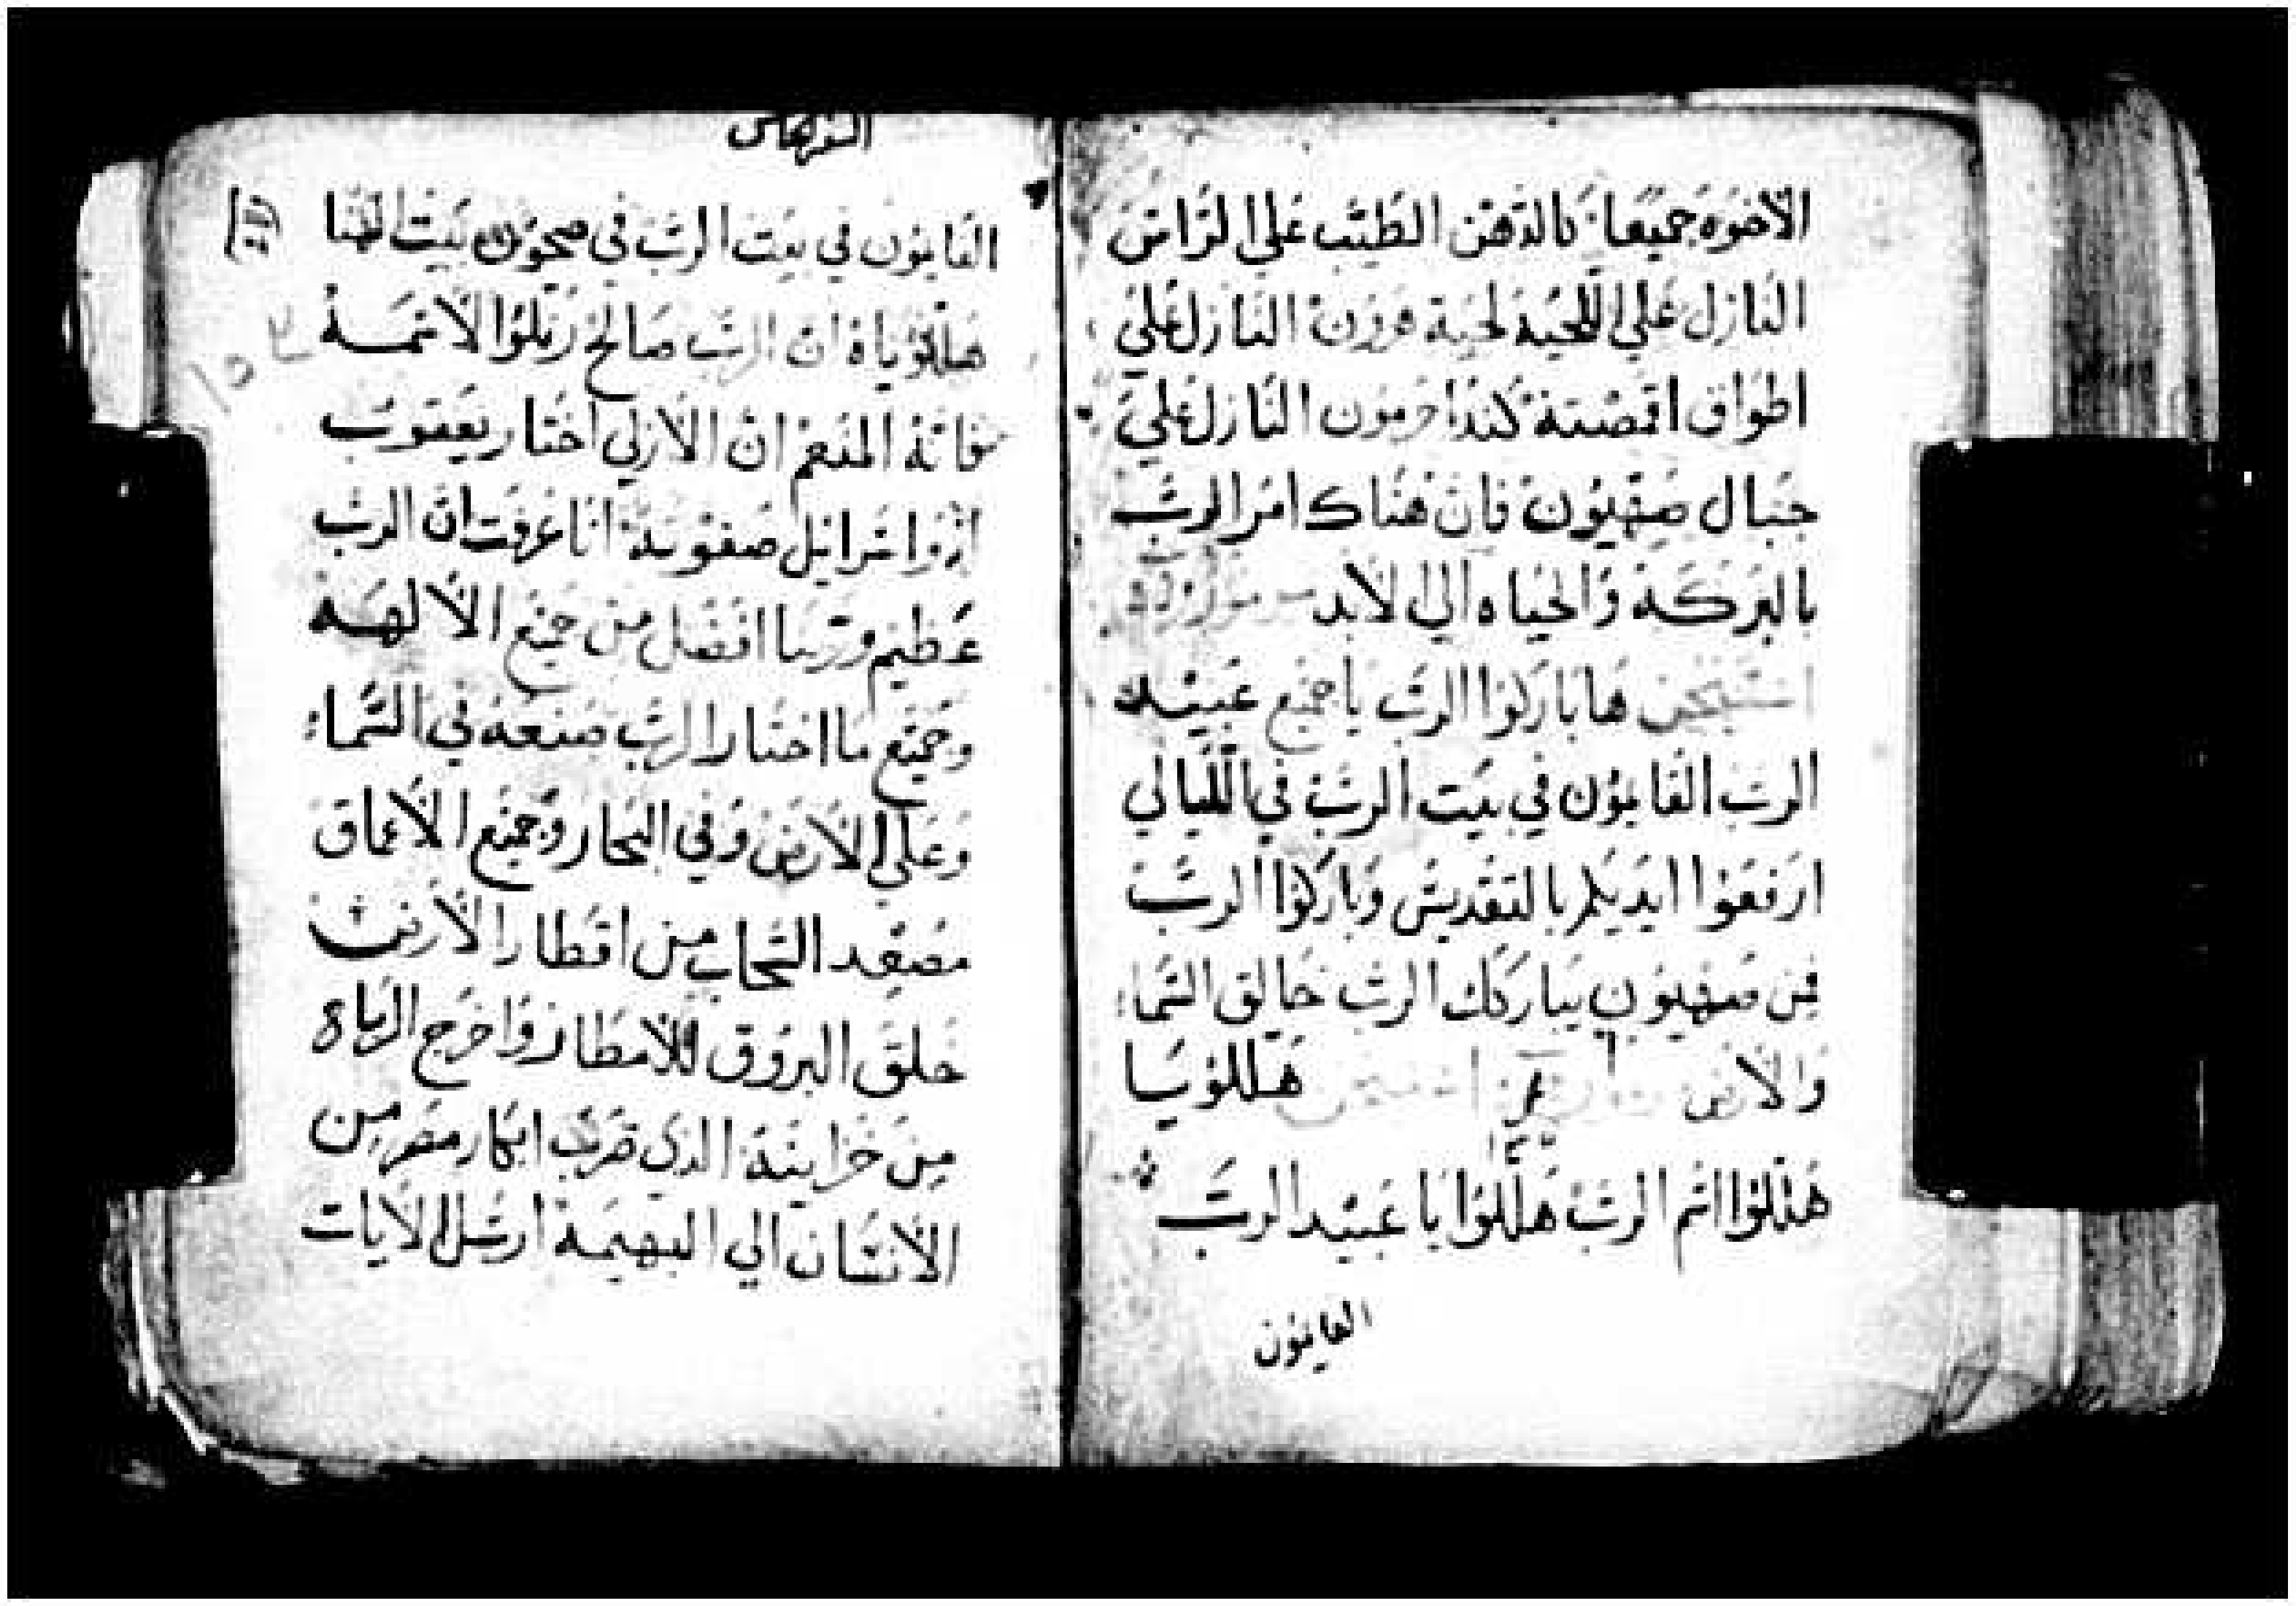 الاخوه جميعا كالدهن الطيب علي الراس
النازل علي اللحية لحية هرون النازل علي
اطواق اقمصته كندا حرمون النازل علي
جبال صهيون فان هناك امر الرب
بالبركة والحياه الي الابد
ها باركوا الرب يا جميع عبيد
الرب القايمون في بيت الرب في الليالي
ارفعوا ايديكم بالتقديس وباركوا الرب
من صهيون يباركك الرب خالق السماء
والارض هللويا
هللوا اسم الرب هللوا يا عبيد الرب
القايمون
القايمون في بيت الرب في صحون بيت الهنا
هللوياه ان الرب صالح رتلوا لاسمه
فانه المنعم ان الازلي اختار يعقوب
واسرائيل صفوته انا عرفت ان الرب
عظيم وربنا افضل من جميع الالهه
وجميع ما اختار الرب صنعه في السماء
وعلي الارض وفي البحار وجميع الاعماق
مصعد السحاب من اقطار الارض
خلق البروق للامطار واخرج الرياح
من خزاينه الذي ضرب ابكار مصر من
الانسان الي البهيمة ارسل الايات